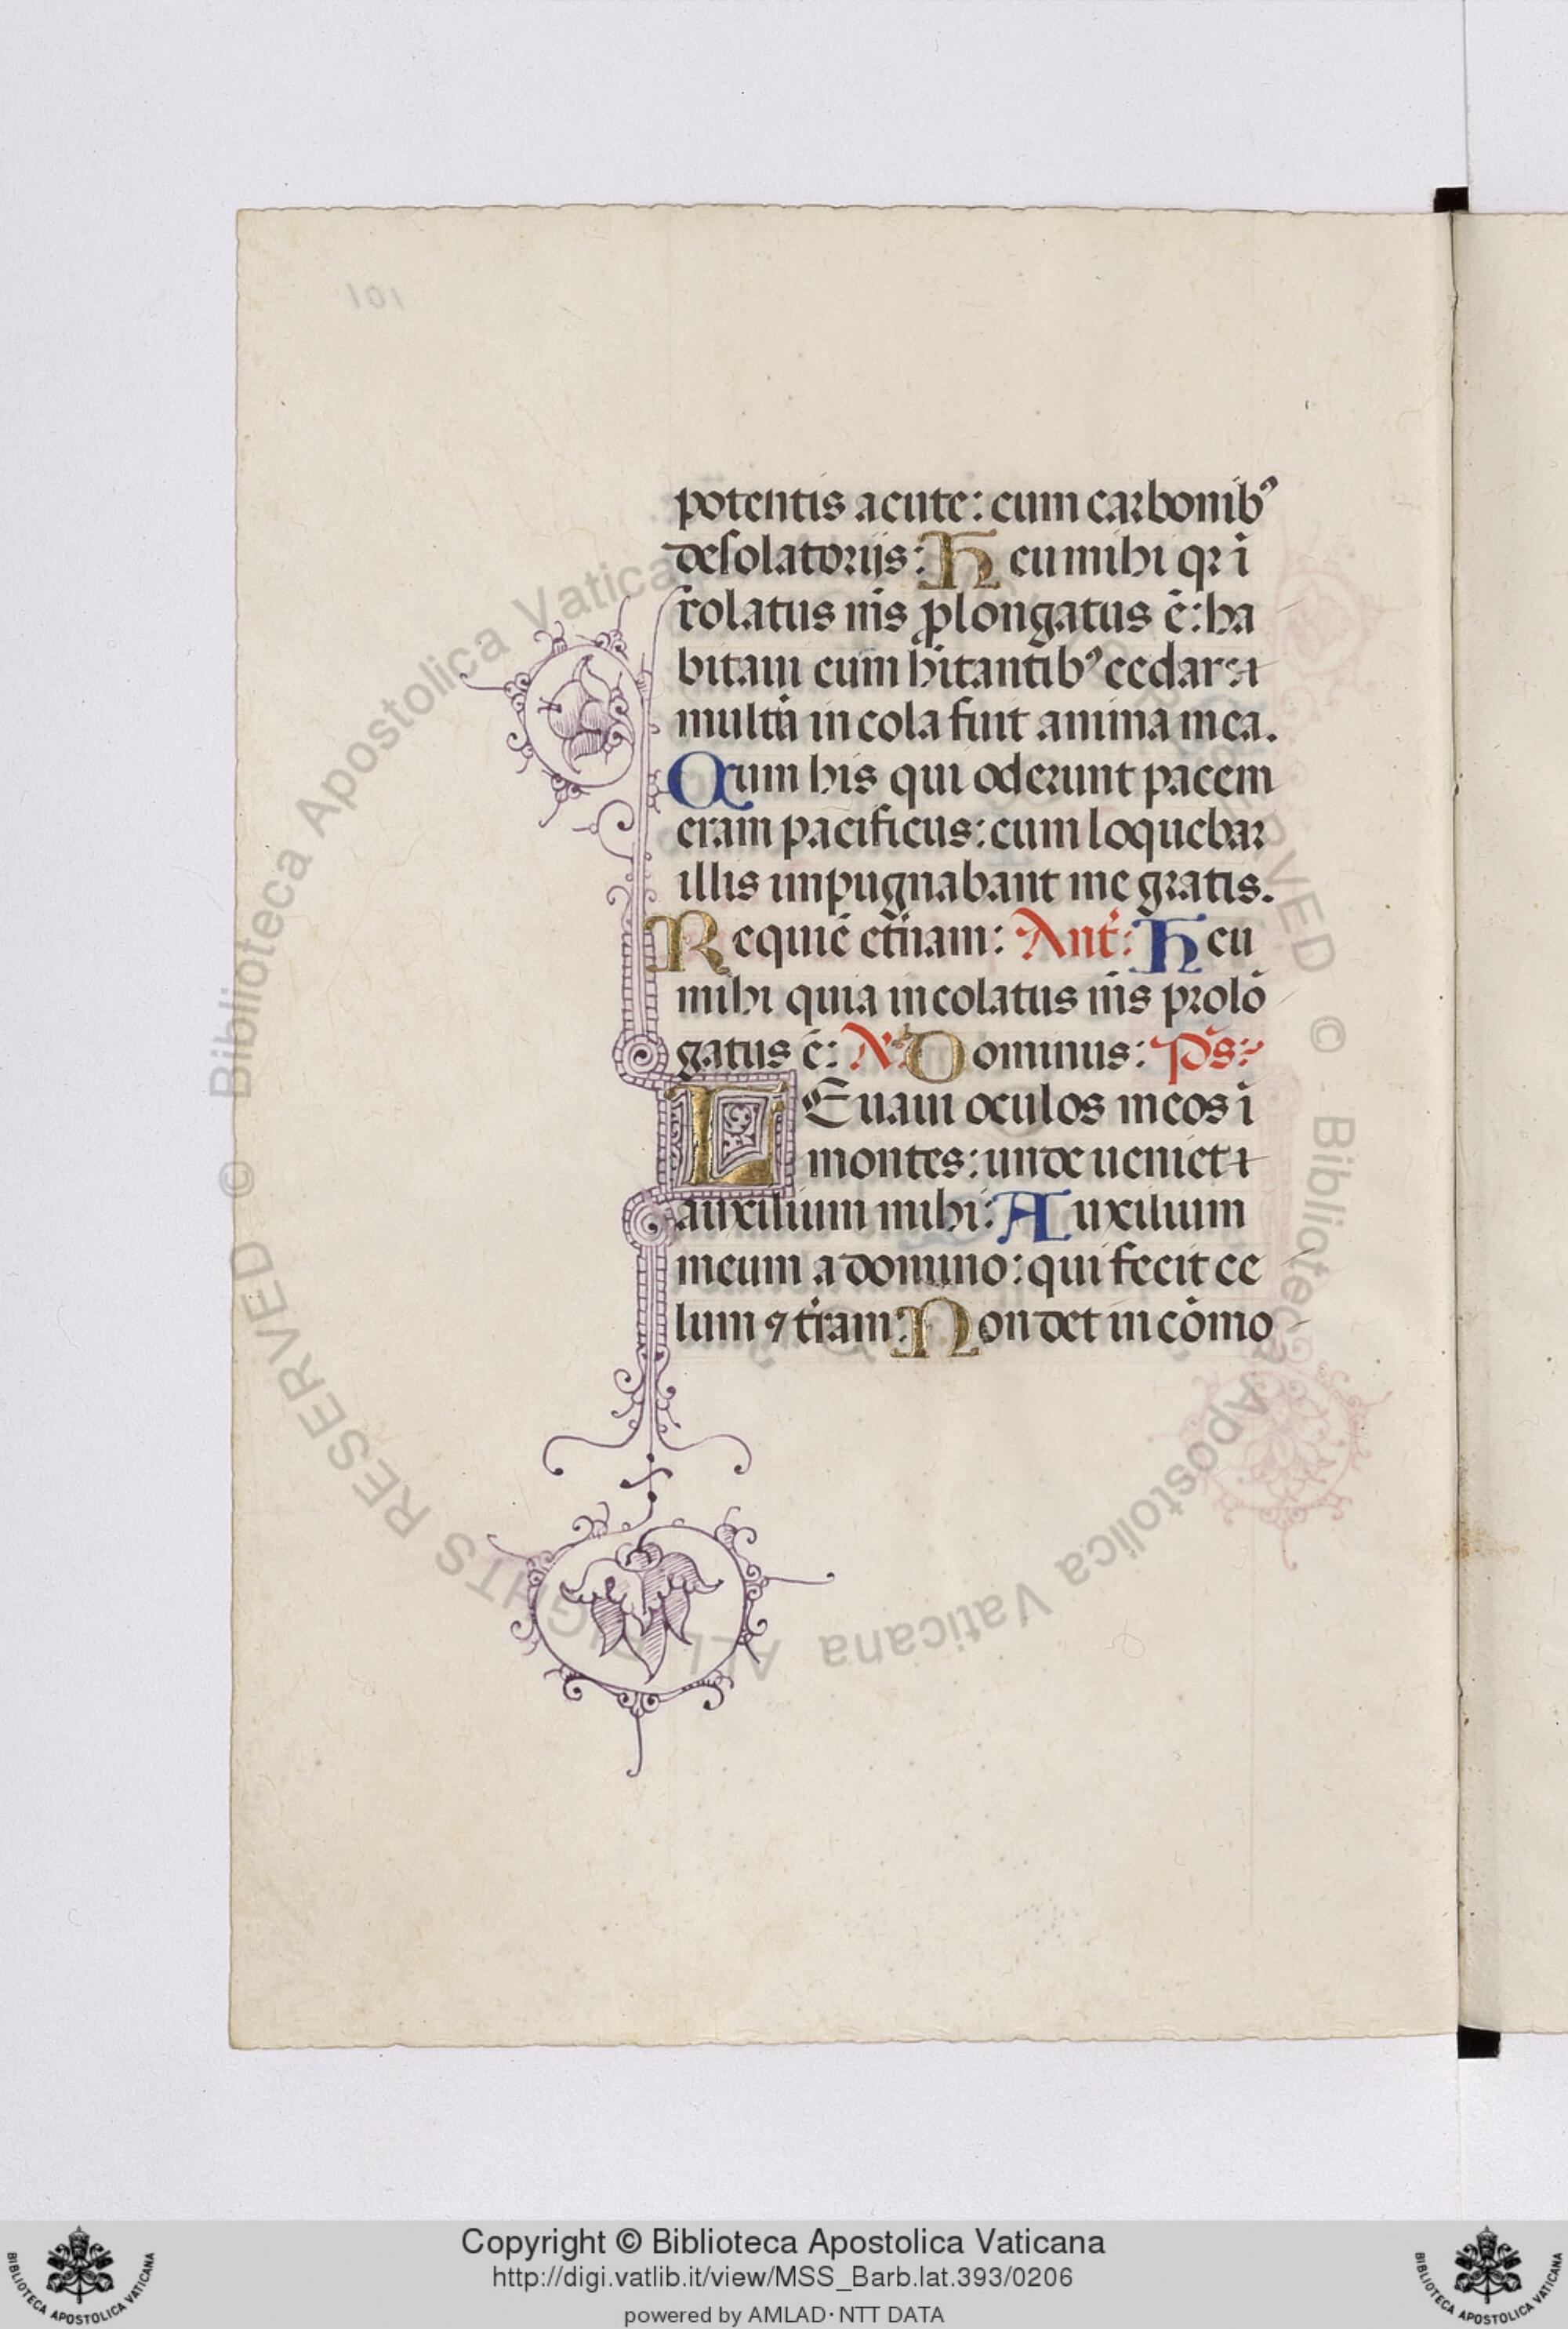 101
potentis acute: cum carbonibꝰ
desolatorijs: Heu mihi qꝛ ī
colatus m̄s ꝓlongatus ē: ha
bitaui cum hītantibꝰ cedar:
multū incola fuit anima mea.
Cum his qui oderunt pacem
eram pacificus: cum loquebar
illis impugnabant me gratis.
Requiē et̄nam: Ant̄: Heu
mihi quia incolatus m̄s prolō
gatus ē: V̄. Dominus: p̄s:
LEuaui oculos meos ī
montes: unde ueniet
auxilium mihi: Auxilium
meum a domino: qui fecit ce
lum ⁊ t̄ram: Non det in cōmo
© Biblioteca Apostolica Vaticana ALL RIGHTS RESERVED © Biblioteca Apostolica Vaticana
Copyright © Biblioteca Apostolica Vaticana
http://digi.vatlib.it/view/MSS_Barb.lat.393/0206
powered by AMLAD·NTT DATA
BIBLIOTECA APOSTOLICA VATICANA
BIBLIOTECA APOSTOLICA VATICANA